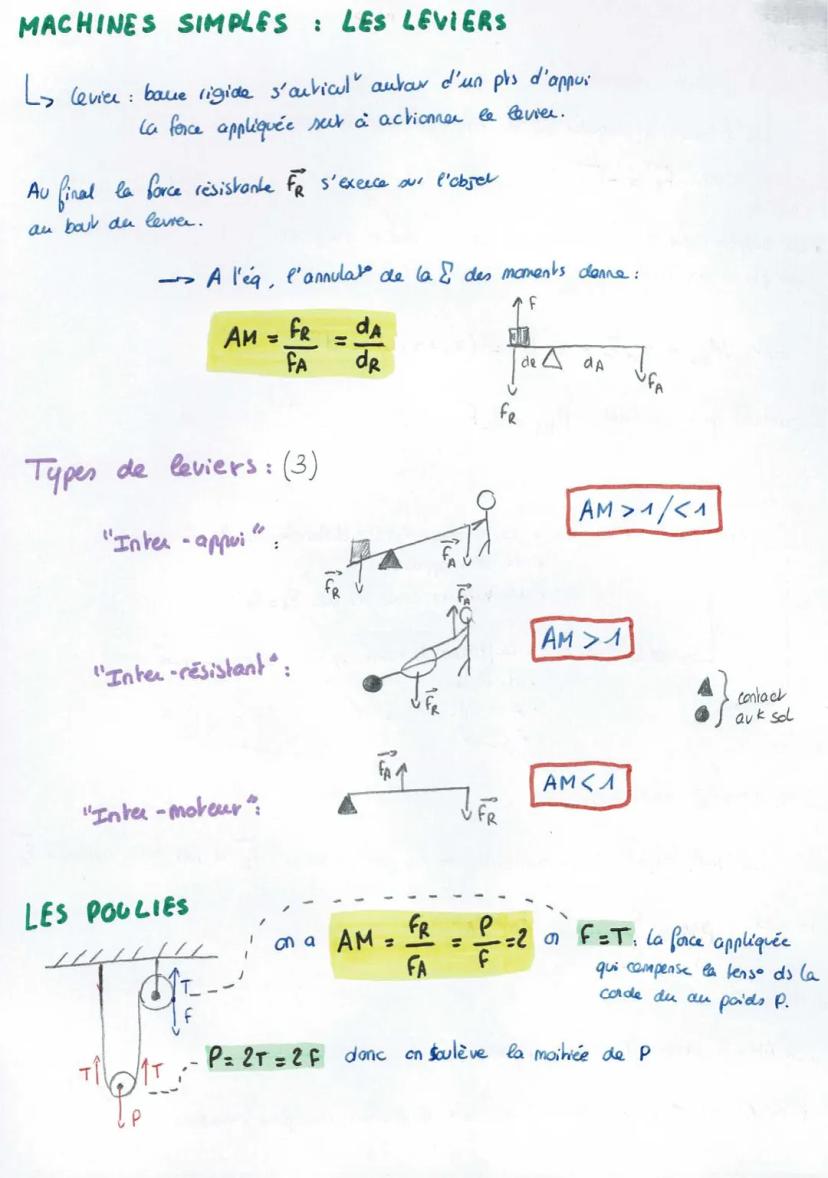 MACHINES SIMPLES : LES LEVIERS
↳ levier : barre rigide s'articulᵗ autour d'un pts d'appui
la force appliquée sert à actionner le levier.
Au final la force résistante F_R s'exerce sur l'objet
au bout du levier.
→ A l'éq, l'annulat° de la Σ des moments donne :
AM = F_R / F_A = d_A / d_R
F
d_R d_A
F_A
F_R
Types de leviers : (3)
"Inter-appui" :
F_R
F_A
AM > 1 / < 1
"Inter-résistant" :
F_A
F_R
AM > 1
contact
avk sol
"Inter-moteur" :
F_A
F_R
AM < 1
LES POULIES
on a AM = F_R / F_A = P / F = 2 or F = T : la force appliquée
qui compense la tens° ds la
corde du au poids P.
T
F
T T
P
P = 2T = 2F donc on soulève la moitiée de P